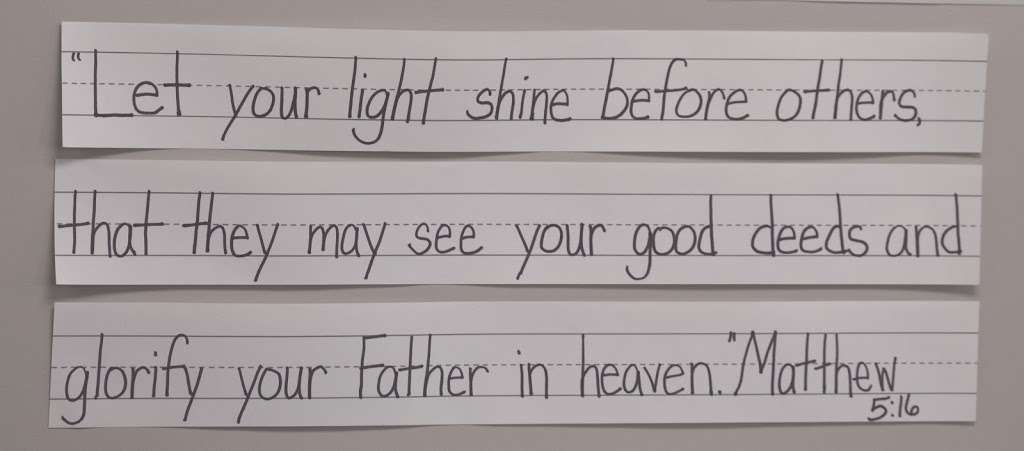 "Let your light shine before others,
that they may see your good deeds and
glorify your Father in heaven." Matthew
5:16